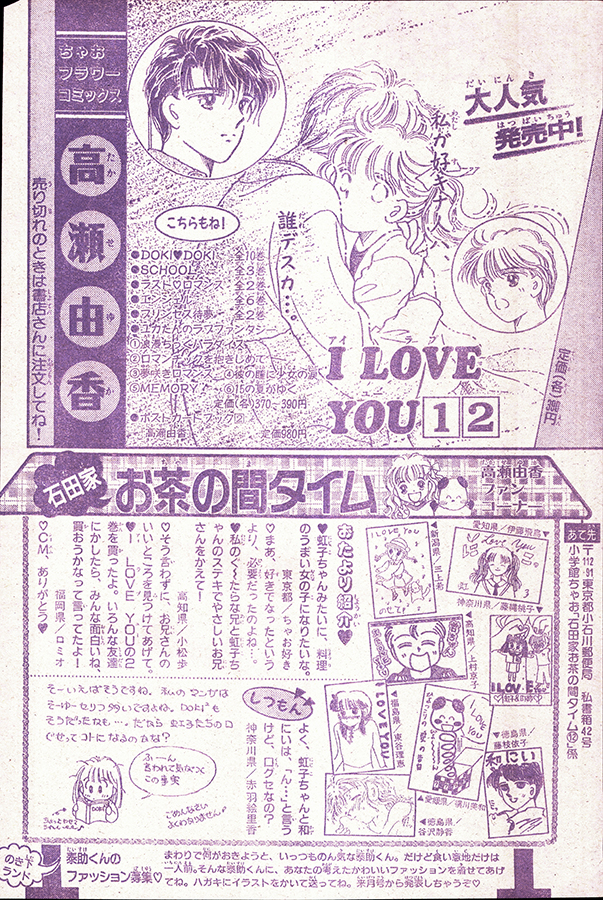 ちゃお
フラワー
コミックス
高瀬由香
売り切れのときは書店さんに注文してね!
大人気
発売中!
私が好きな人、
誰デスカ…。
こちらもね!
●DOKI♥DOKI 全10巻
●SCHOOL 全3巻
●ラスト♡ロマンス 全2巻
●エンジェル 全6巻
●プリンセス待夢 全2巻
●ユカたんのラブファンタジー
②ロマンチックを抱きしめて
③夢咲きロマンス
⑤MEMORY
⑥15の夏がゆく
定価(各)370〜390円
高瀬由香
定価980円
I LOVE
YOU 1 2
定価(各)390円
石田家
お茶の間タイム
高瀬由香
ファン
コーナー
あて先
〒112-91 東京都小石川郵便局 私書箱42号
小学館ちゃお「石田家お茶の間タイム⑫」係
おたより紹介♥
♥虹子ちゃんみたいに、料理
のうまい女の子になりたいな。
東京都/ちゃお好き
♡まあ、好きでなったという
より、必要だったのよね…。
♥私のぐ〜たらな兄と虹子ち
ゃんのステキでやさしいお兄
さんをかえて!
高知県/小松歩
♡そう言わずに、お兄さんの
いいところを見つけてあげて。
♥I LOVE YOUの2
巻を買ったよ。いろんな友達
にかしたら、みんな面白いね、
買おうかなって言ってたよ!
福岡県/ロミオ
♡CM、ありがとう♥
しつもん
よく、虹子ちゃんと和
にいは、「ん…」と言う
けど、口グセなの?
神奈川県/赤羽絵里香
そーいえばそうですね。私のマンガは
そーゆーセリフ多いですよね。DOKIも
そうだったなも…。だから虹子たちの口
ぐせってコトになるのかな?
ふーん
言われて気がつく
この事実
ごめんなさい
愛知県/伊藤飛鳥▲
神奈川県/藤縄桃子▼
◀新潟県/三上弟
◀高知県/上村京子
◀福島県/東谷理恵
◀徳島県/藤枝依子
◀徳島県/谷沢静香
I LOVE YOU
のせて!
和にい
のき下
ランド
泰助くんの
ファッション募集♡
まわりで何がおきようと、いっつものん気な泰助くん。だけど食い意地だけは
一人前。そんな泰助くんに、あなたの考えたかわいいファッションを着せてあげ
てね。ハガキにイラストをかいて送ってね。来月号から発表しちゃうぞ♡